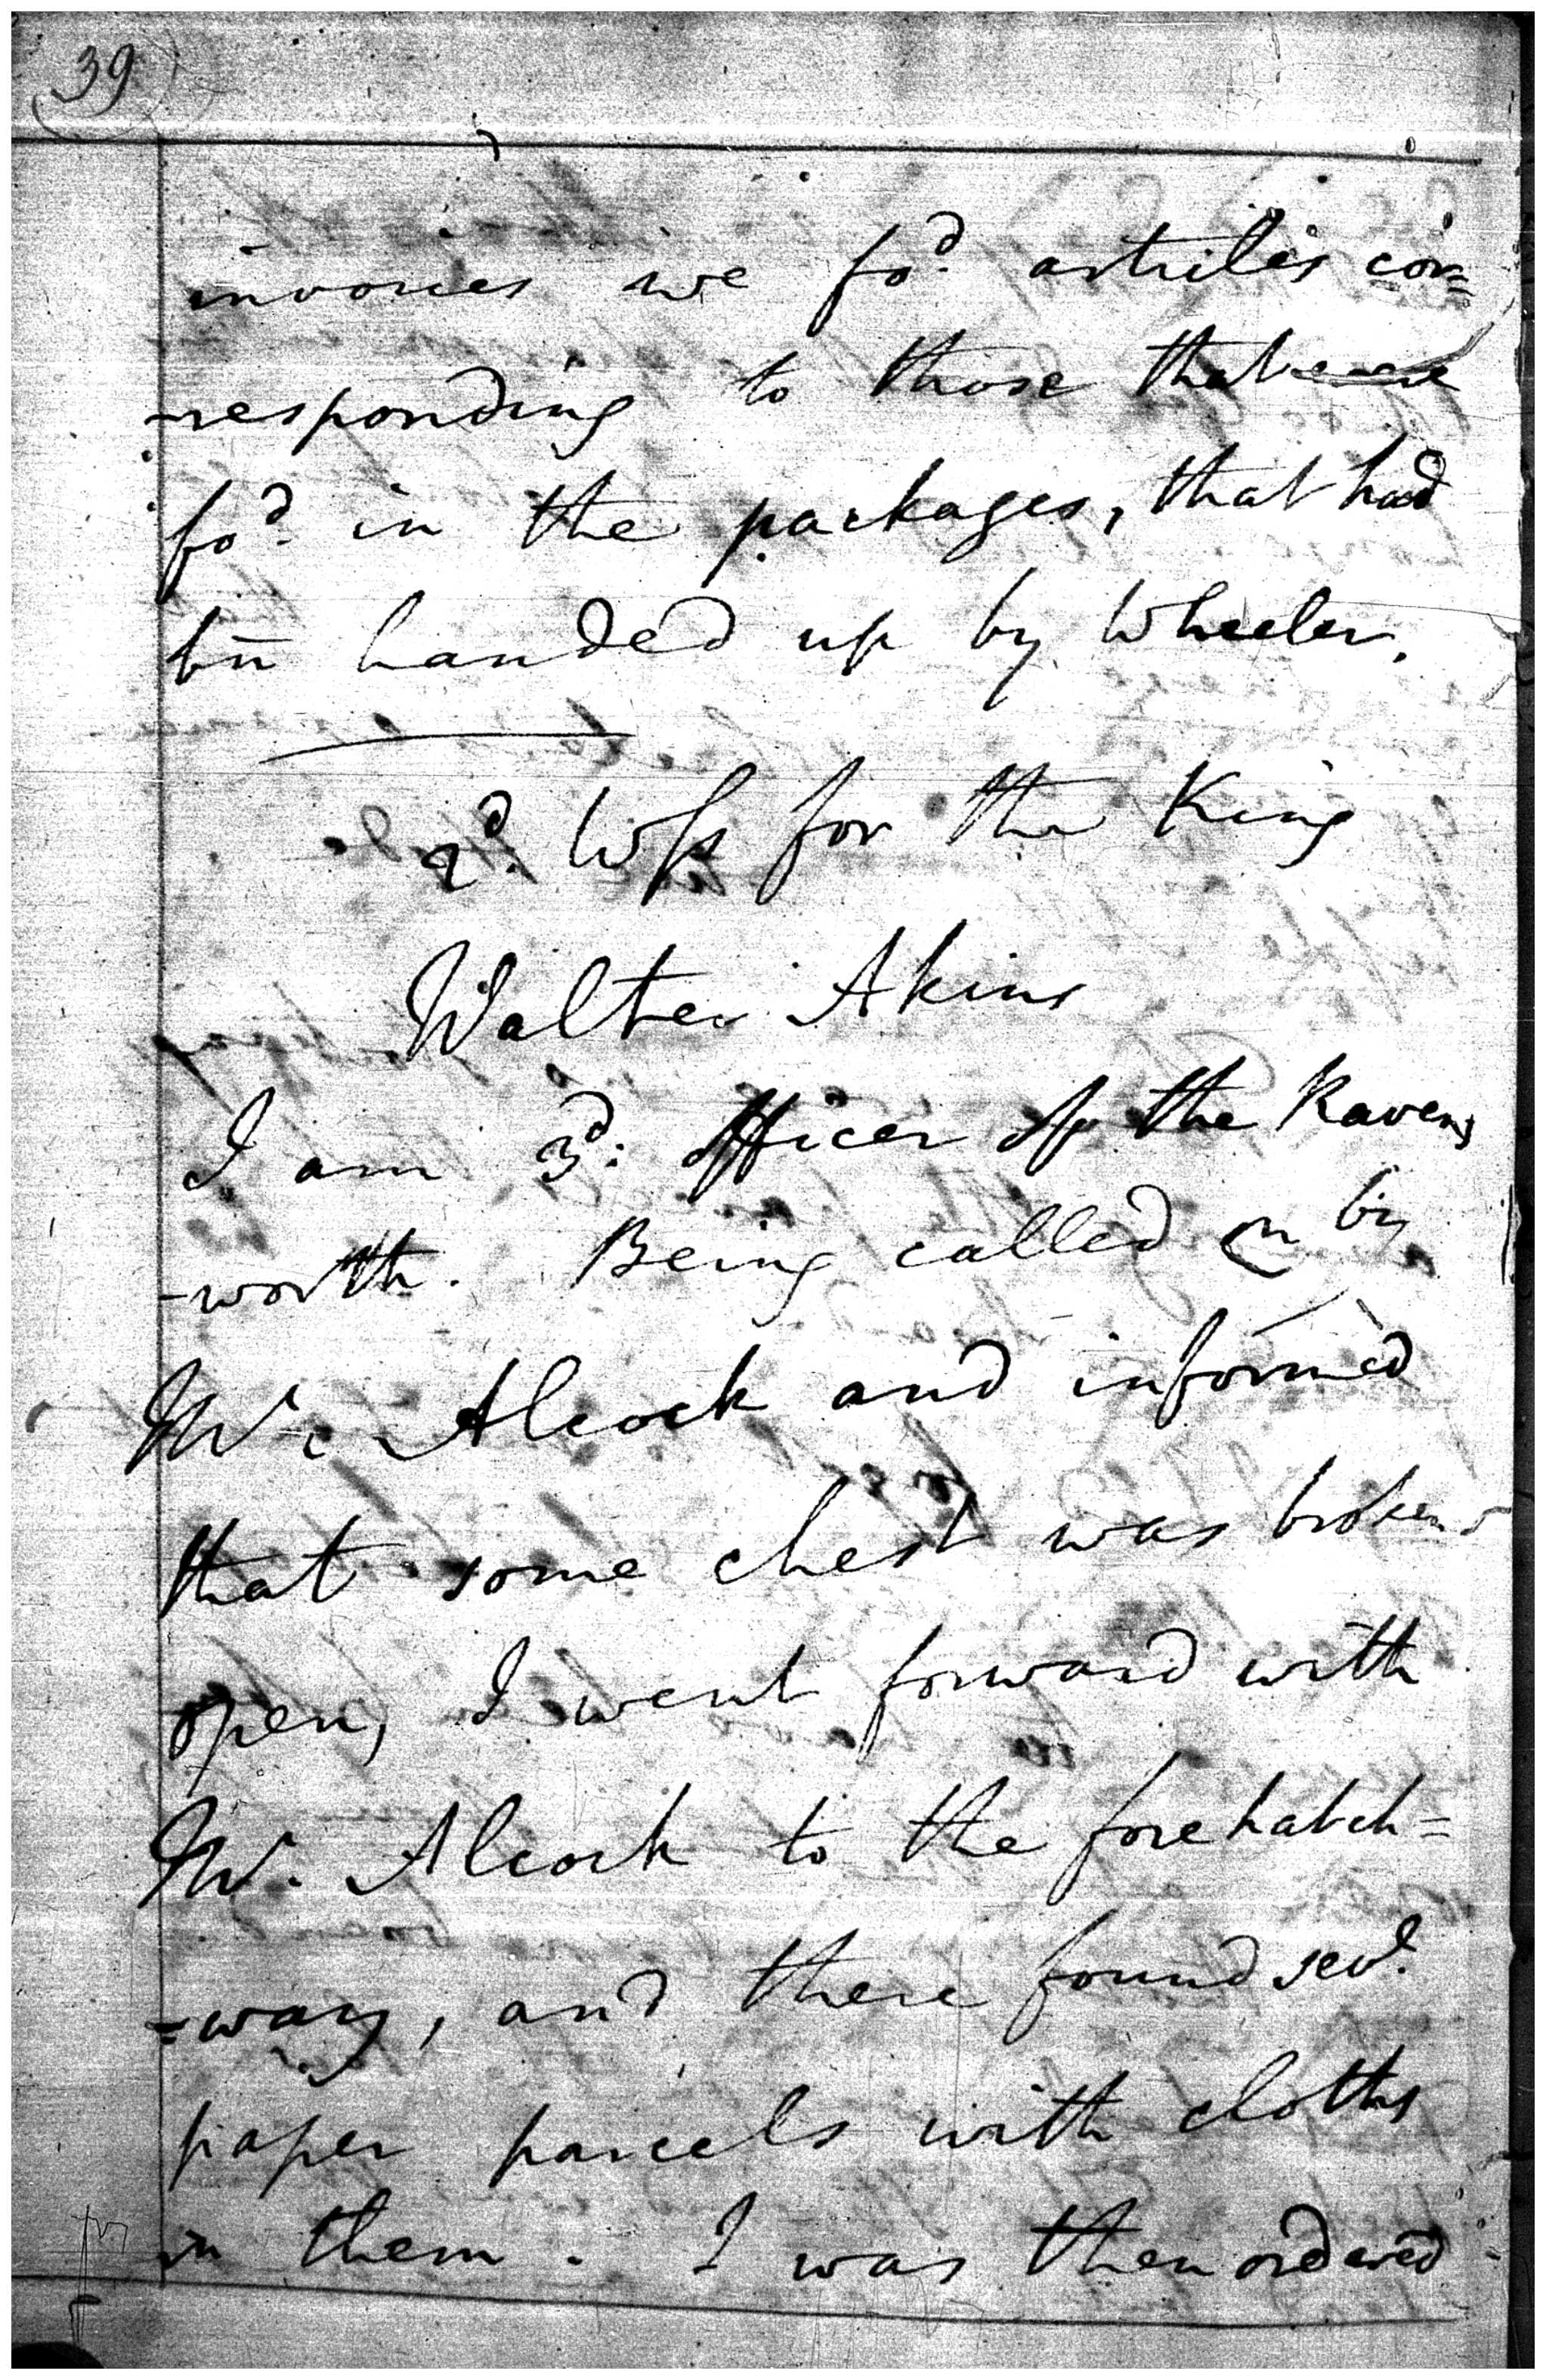 39
invoices we fo.d articles cor=
-responding to those that were
fo.d in the packages, that had
bn handed up by Wheeler.
2.d Wss for the King
Walter Akins
I am 3.d officer of the Ravens
-worth. Being called on by
Mr. Alcock and informed
that some chest was broken
open, I went forward with
Mr. Alcock to the forehatch=
=way, and there found sev.l
paper parcels with cloths
in them. I was then ordered